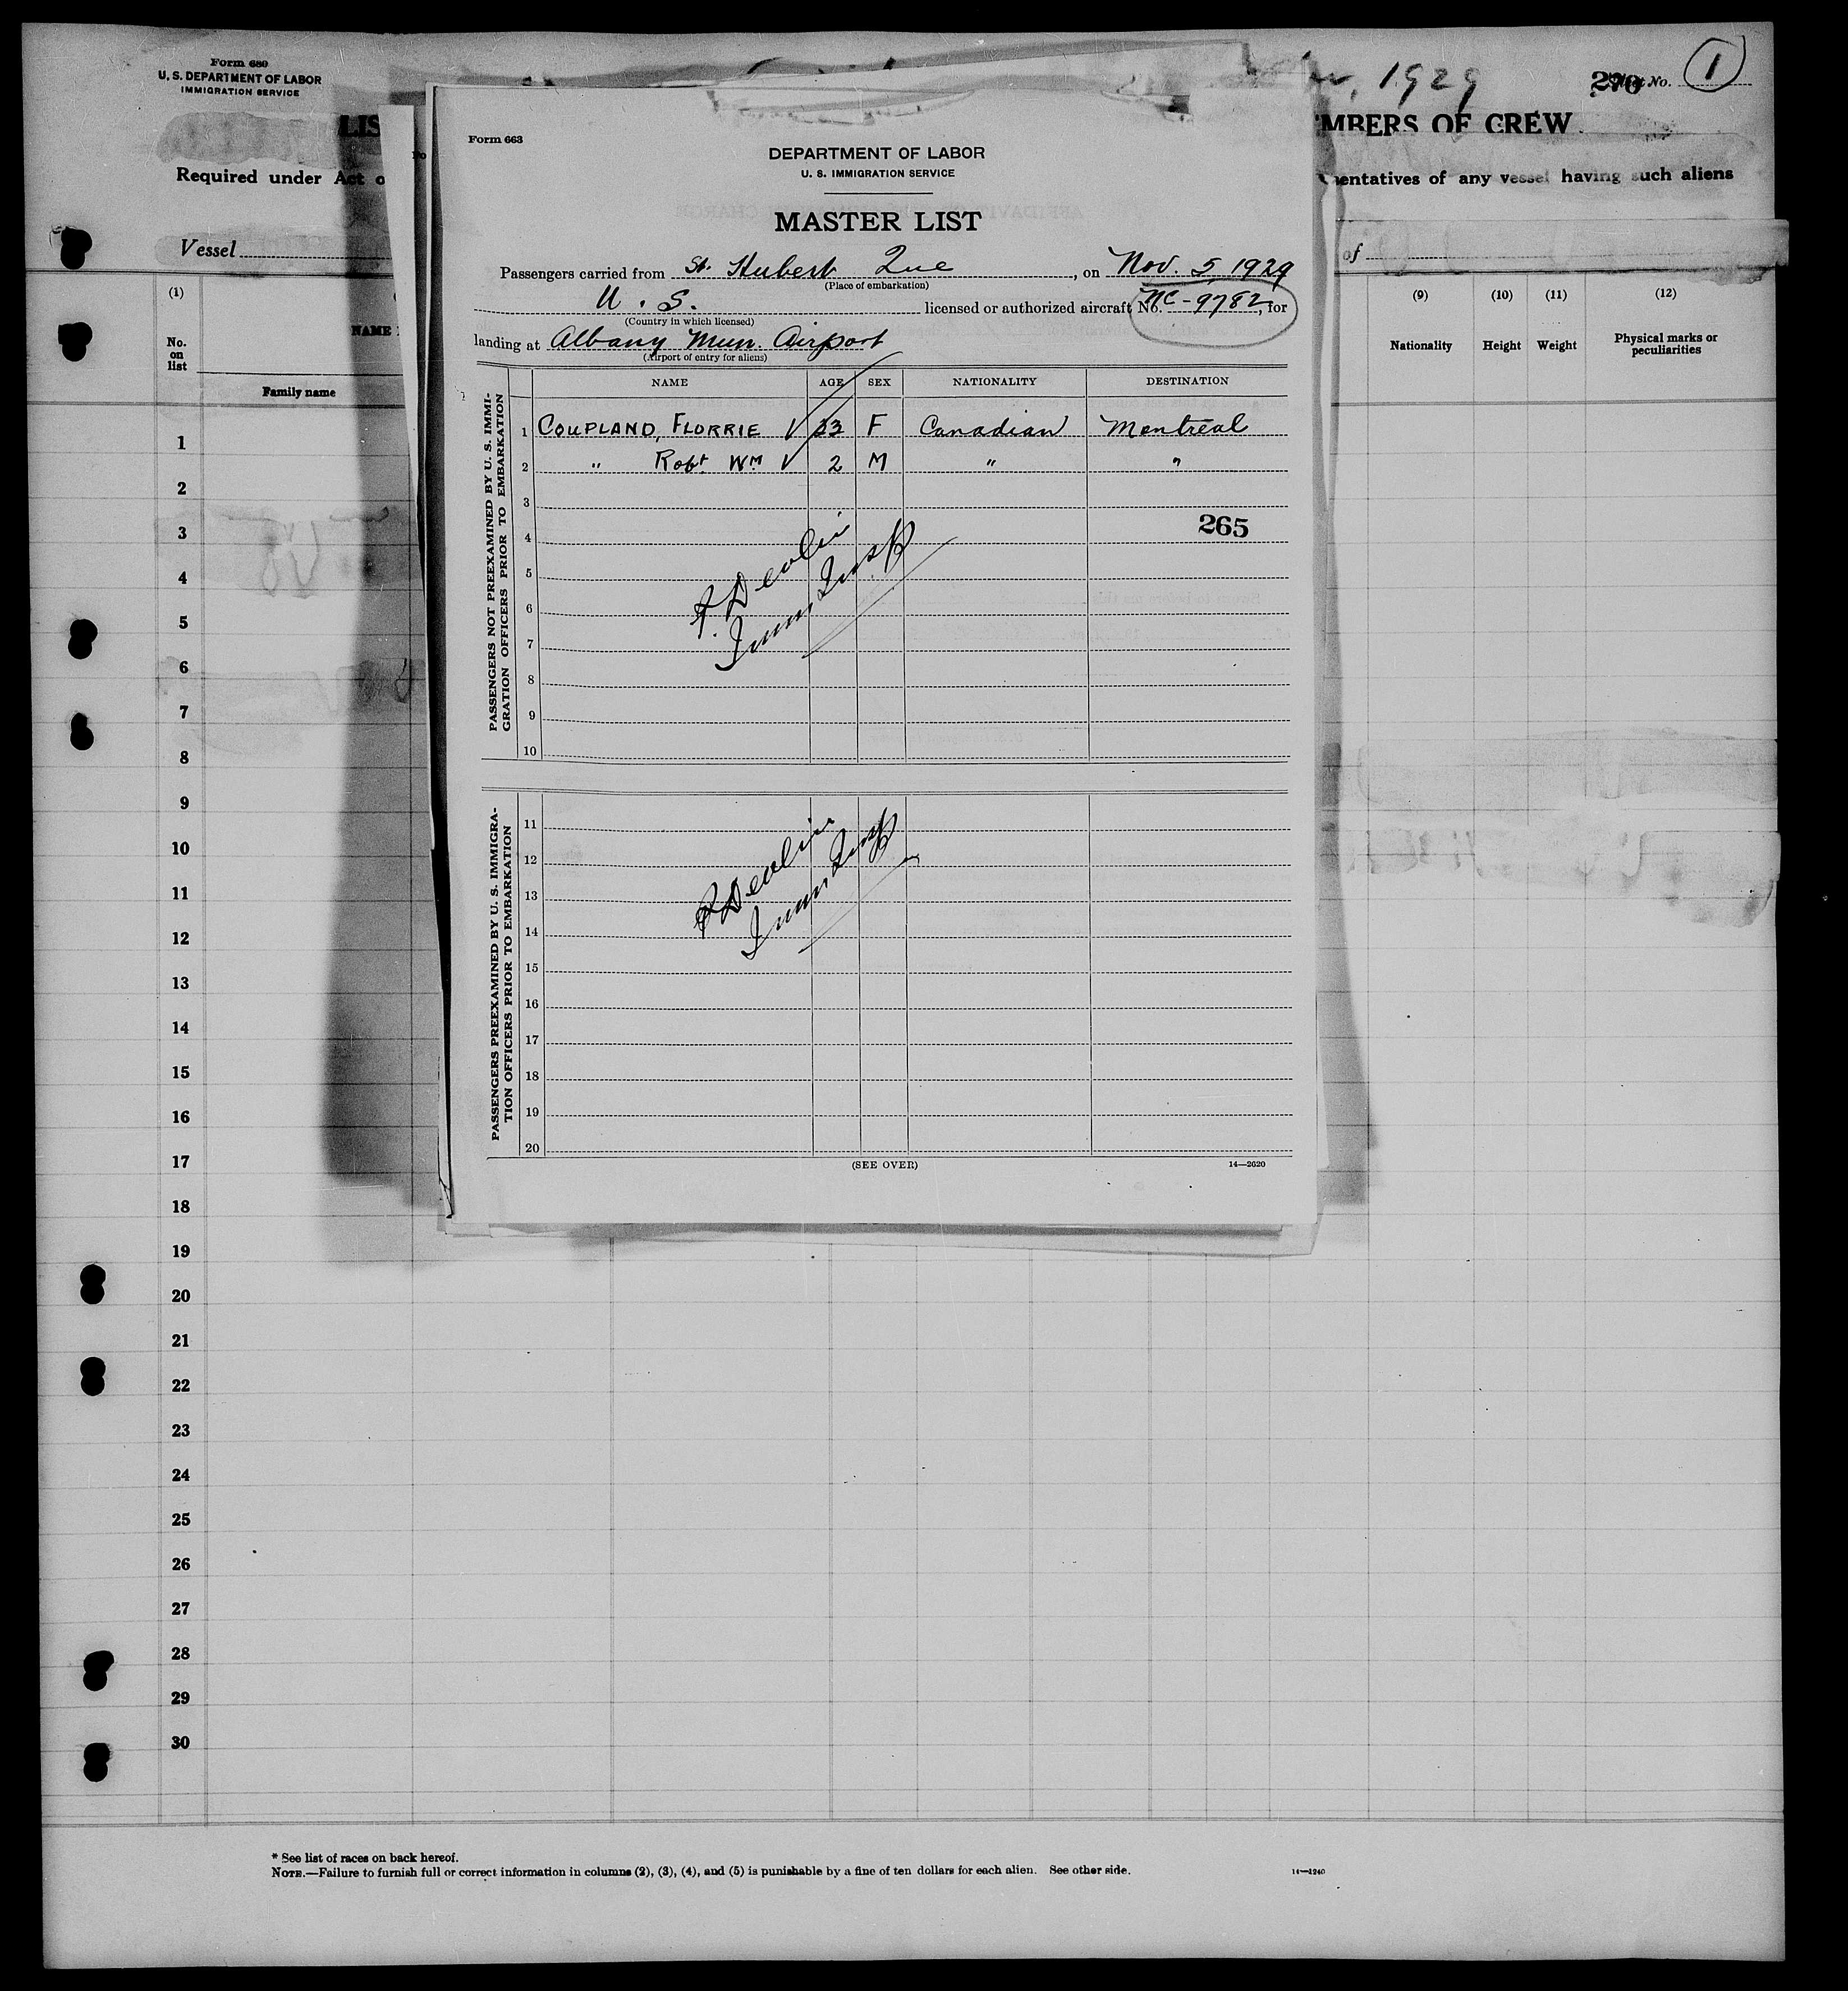 Form 680
U. S. DEPARTMENT OF LABOR
IMMIGRATION SERVICE
, 1929
270
No. 1
LIS
MBERS OF CREW
Required under Act o
entatives of any vessel having such aliens
Vessel
of
(1)
No.
on
list
NAME
Family name
(9)
Nationality
(10)
Height
(11)
Weight
(12)
Physical marks or
peculiarities
Form 663
DEPARTMENT OF LABOR
U. S. IMMIGRATION SERVICE
MASTER LIST
Passengers carried from St. Hubert Que, on Nov. 5, 1929
(Place of embarkation)
U. S. licensed or authorized aircraft No. NC-9782, for
(Country in which licensed)
landing at Albany Mun. Airport
(Airport of entry for aliens)
NAME AGE SEX NATIONALITY DESTINATION
PASSENGERS NOT PREEXAMINED BY U. S. IMMI-
GRATION OFFICERS PRIOR TO EMBARKATION
1 COUPLAND, FLORRIE V 33 F Canadian Montreal
2 " Robt Wm V 2 M " "
3
265
4
5
6
7
8
9
10
Devlin
Imm Insp
PASSENGERS PREEXAMINED BY U. S. IMMIGRA-
TION OFFICERS PRIOR TO EMBARKATION
11
12
13
14
15
16
17
18
19
20
Devlin
Imm Insp
(SEE OVER)
14—2620
1
2
3
4
5
6
7
8
9
10
11
12
13
14
15
16
17
18
19
20
21
22
23
24
25
26
27
28
29
30
* See list of races on back hereof.
NOTE.—Failure to furnish full or correct information in columns (2), (3), (4), and (5) is punishable by a fine of ten dollars for each alien. See other side.
14—1240